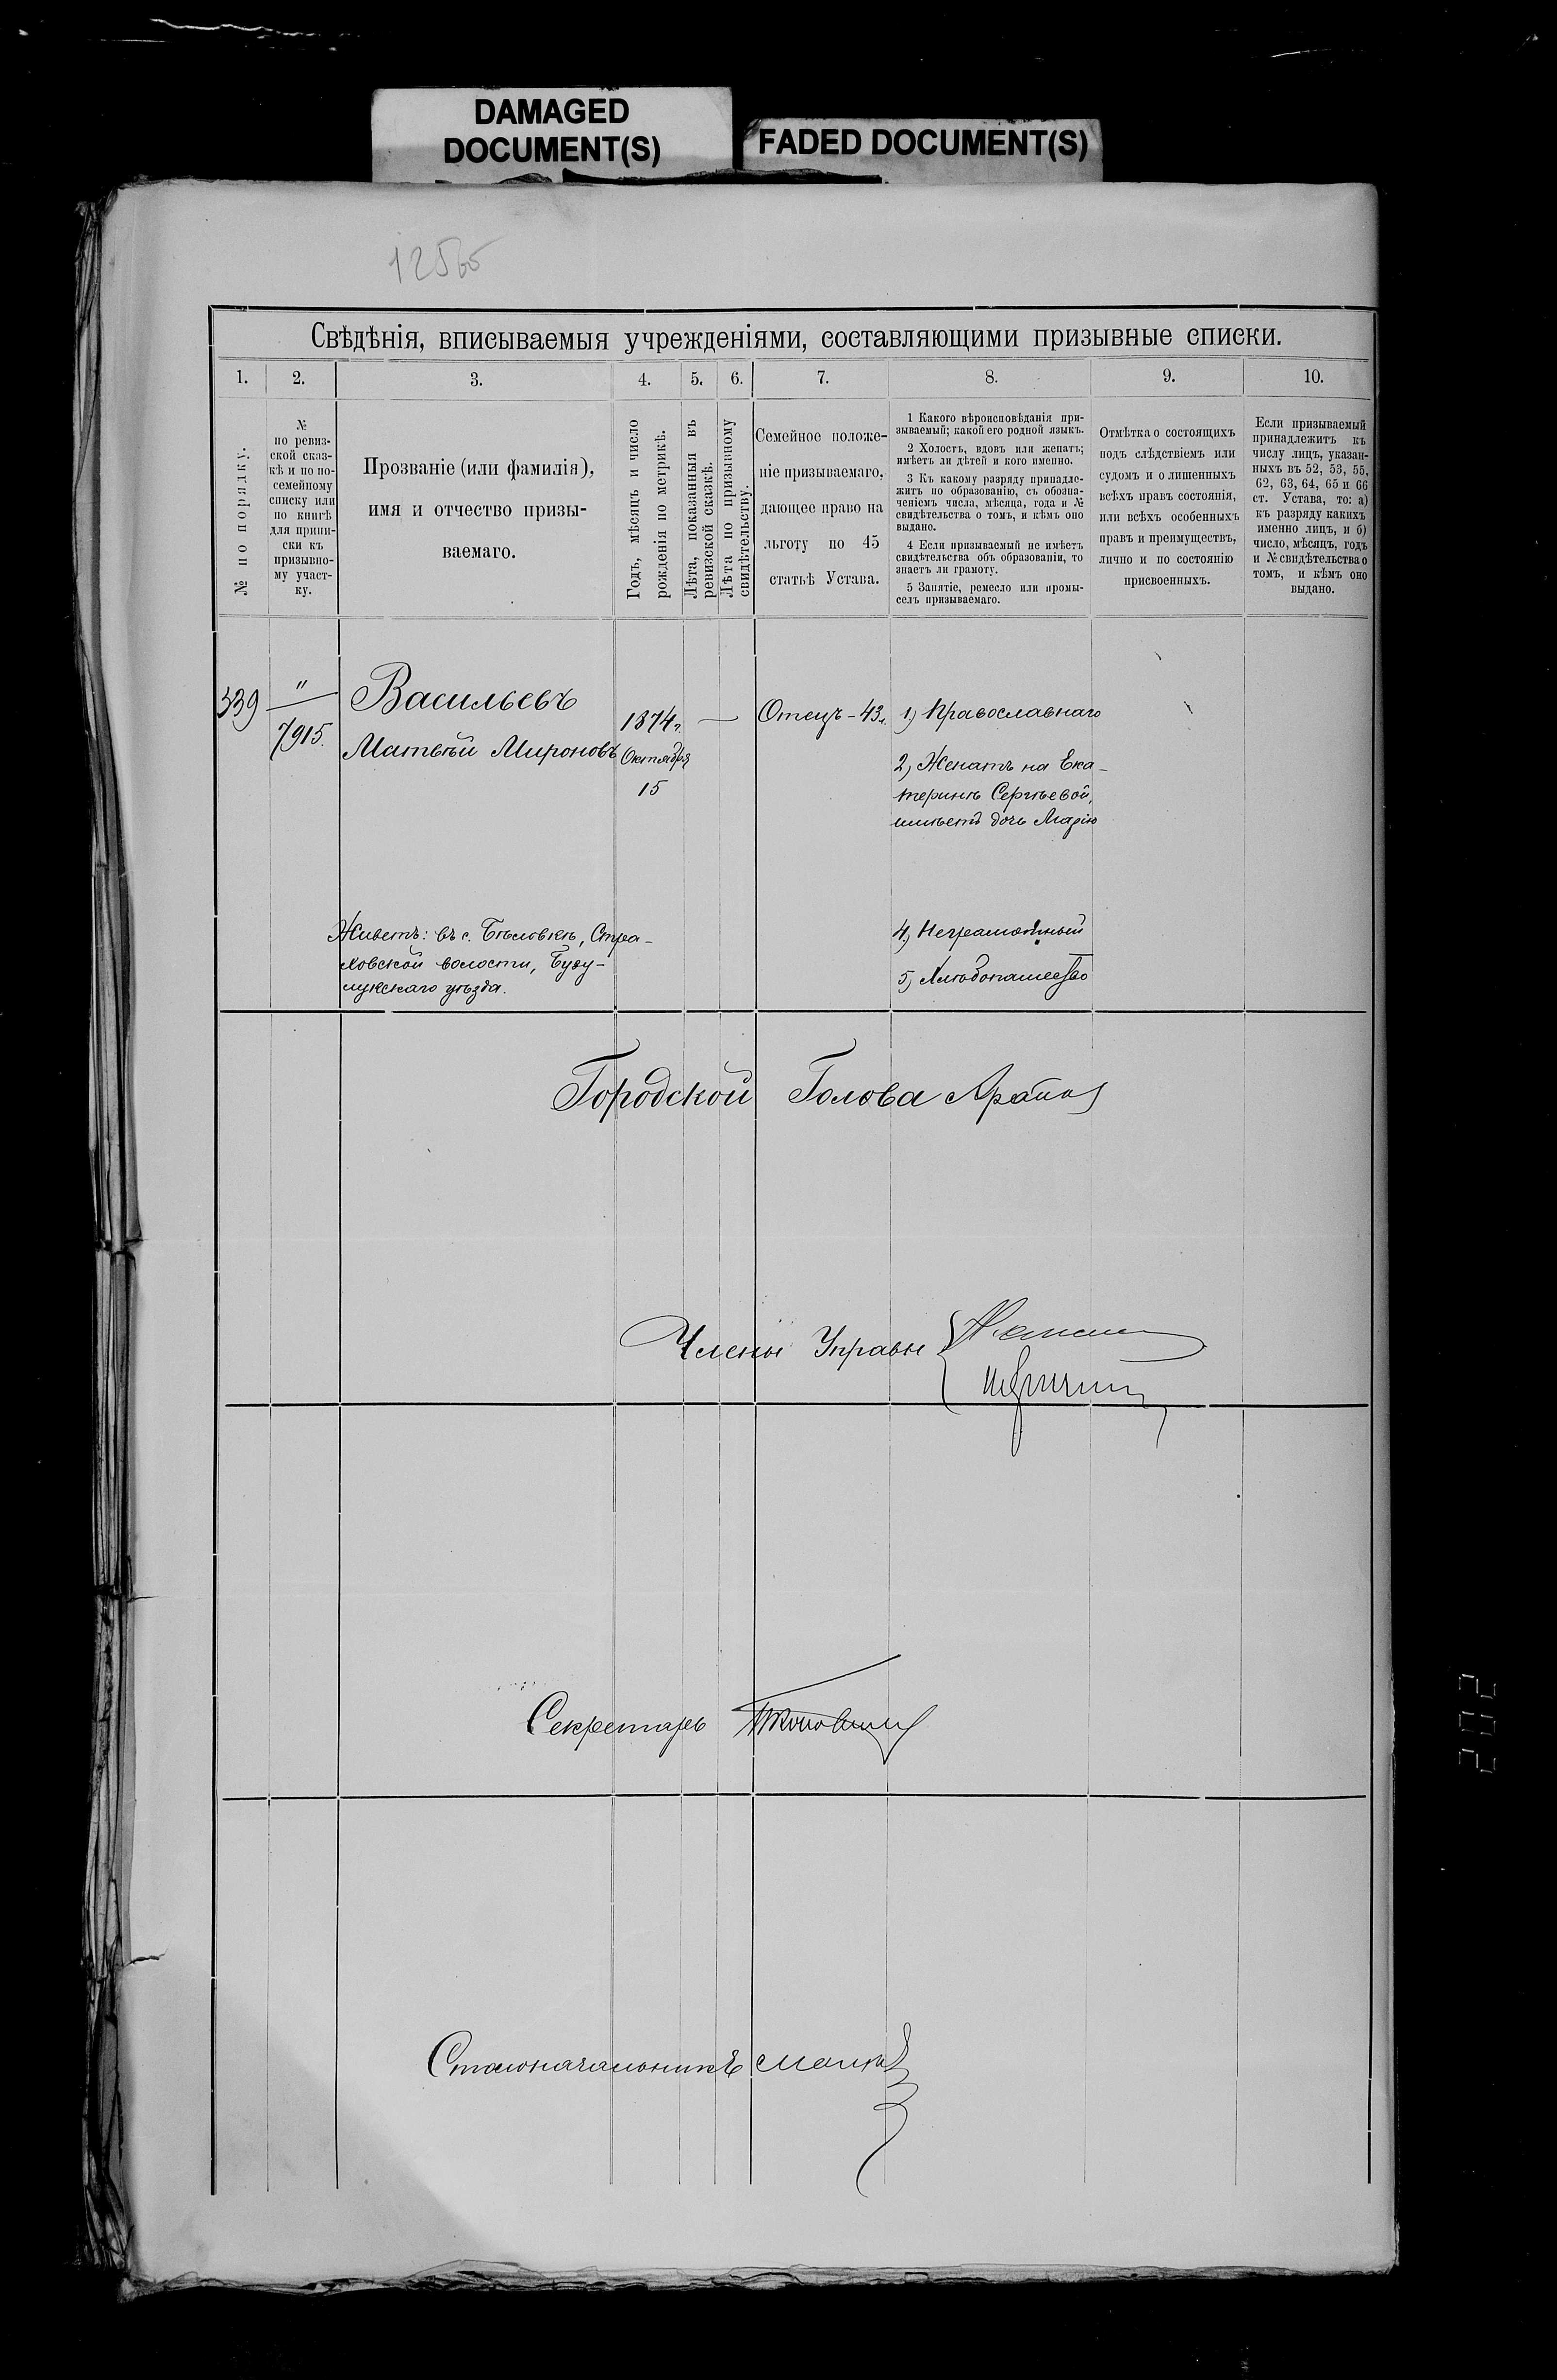 DAMAGED
DOCUMENT(S)
FADED DOCUMENT(S)
Свѣдѣнія, вписываемыя учрежденіями, составляющими призывные списки.
1.
2.
3.
4.
5.
6.
7.
8.
9.
10.
№ по порядку.
№
по ревиз-
ской сказ-
кѣ и по по-
семейному
списку или
по книгѣ
для припи-
ски къ
призывно-
му участ-
ку.
Прозваніе (или фамилія),
имя и отчество призы-
ваемаго.
Годъ, мѣсяцъ и число
рожденія по метрикѣ.
Лѣта, показанныя въ
ревизской сказкѣ.
Лѣта по призывному
свидѣтельству.
Семейное положе-
ніе призываемаго,
дающее право на
льготу по 45
статьѣ Устава.
1 Какого вѣроисповѣданія при-
зываемый; какой его родной языкъ.
2 Холостъ, вдовъ или женатъ;
имѣетъ ли дѣтей и кого именно.
3 Къ какому разряду принадле-
житъ по образованію, съ обозна-
ченіемъ числа, мѣсяца, года и №
свидѣтельства о томъ, и кѣмъ оно
выдано.
4 Если призываемый не имѣетъ
свидѣтельства объ образованіи, то
знаетъ ли грамоту.
5 Занятіе, ремесло или промы-
селъ призываемаго.
Отмѣтка о состоящихъ
подъ слѣдствіемъ или
судомъ и о лишенныхъ
всѣхъ правъ состоянія,
или всѣхъ особенныхъ
правъ и преимуществъ,
лично и по состоянію
присвоенныхъ.
Если призываемый
принадлежитъ къ
числу лицъ, указан-
ныхъ въ 52, 53, 55,
62, 63, 64, 65 и 66
ст. Устава, то: а)
къ разряду какихъ
именно лицъ, и б)
число, мѣсяцъ, годъ
и № свидѣтельства о
томъ, и кѣмъ оно
выдано.
339
"
7915.
Васильевъ
Матвѣй Мироновъ
1874 г.
Октября
15
—
Отецъ - 43 л.
1) Православнаго
2) Женатъ на Ека-
теринѣ Сергѣевой,
имѣетъ дочь Марію
Живетъ: въ с. Бѣловкѣ, Стра-
ховской волости, Бузу-
лукскаго уѣзда.
4) Неграмотный
5) Хлѣбопашество
Городской Голова
Члены Управы
Секретарь
Столоначальникъ
202